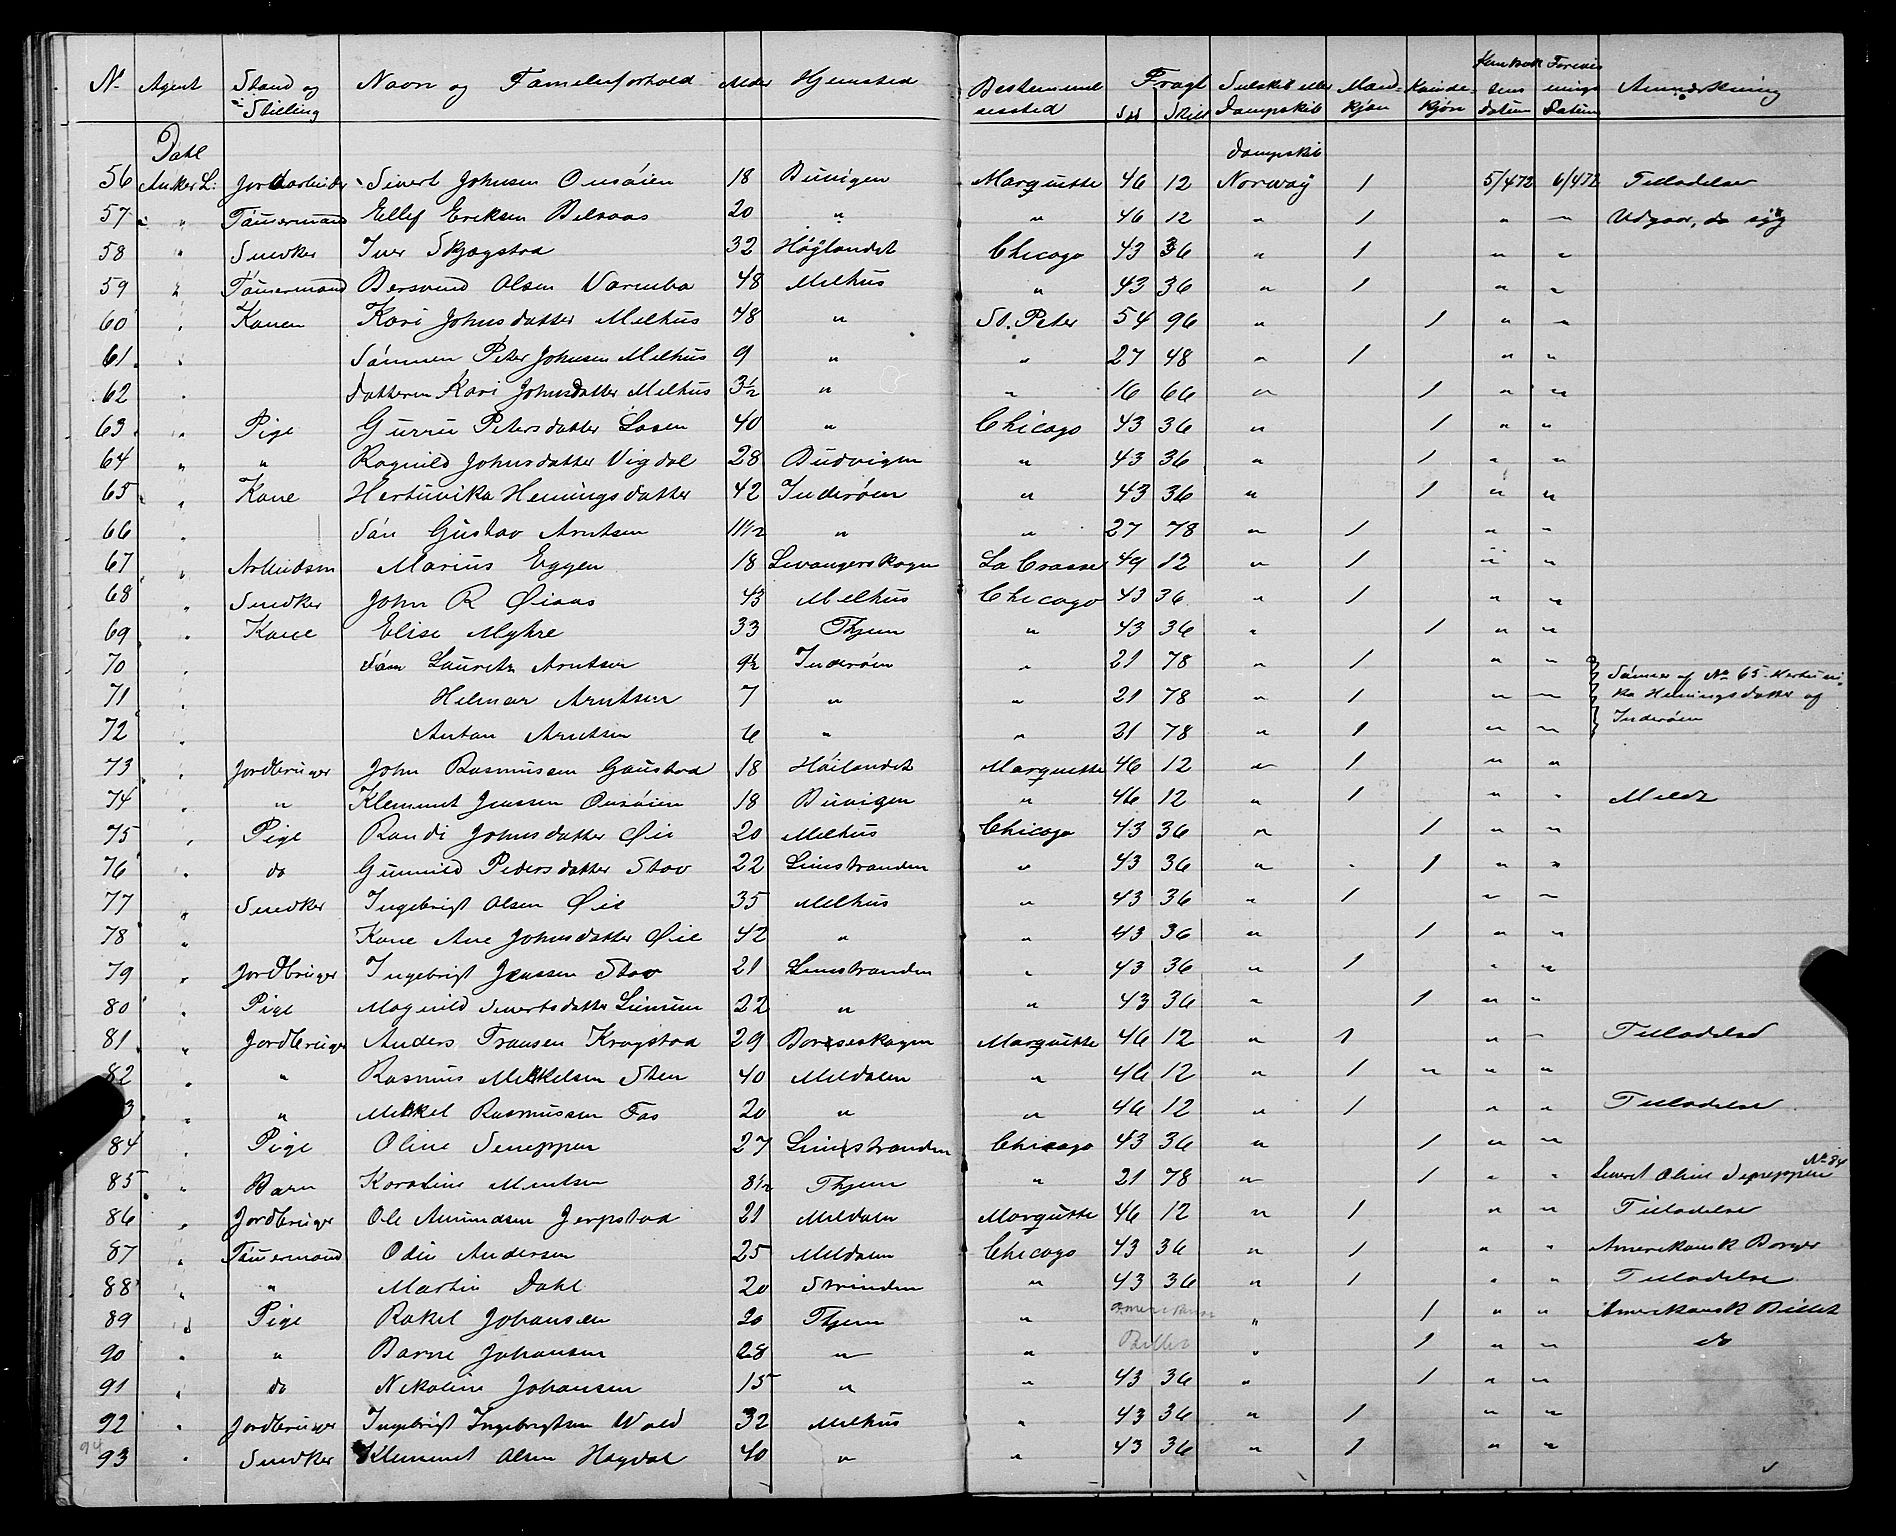 No Agent Stand og Stilling Navn og Familieforhold Alder Hjemsted Bestemmelsessted Fragt Spd Skill Seilskib eller Dampskib Mandkjøn Kvindekjøn Kontraktens datum Forevisnings Datum Anmærkning
Dahl Dampskib
56 Anker L: Jordarbeider Sivert Johnsen Onsøien 18 Buvigen Marquette 46 12 Norway 1 5/4 72 6/4 72 Tilladelse
57 " " Tømermand Ellef Eriksen Belsaas 20 " " 46 12 " 1 " " Udgaar, da syg
58 " Snedker Iver Skjægstad 32 Høylandet Chicago 43 36 " 1 " "
59 " Tømermand Bersvend Olsen Varmbo 48 Melhus " 43 36 " 1 " "
60 " Konen Kari Johnsdatter Melhus 48 " St. Peter 54 96 " 1 " "
61 " Sønnen Peter Johnsen Melhus 9 " " 27 48 " 1 " "
62 " Datteren Kari Johnsdatter Melhus 3½ " " 16 66 " 1 " "
63 " Pige Gurru Petersdatter Losen 40 " Chicago 43 36 " 1 " "
64 " " Ragnild Johnsdatter Vigdal 28 Budvigen " 43 36 " 1 " "
65 " Kone Hertuvika Hemingsdatter 42 Inderøen " 43 36 " 1 " "
66 " Søn Gustav Arntsen 11½ " " 27 78 " 1 " "
67 " Arbeidsm Marius Eggen 18 Levangerskogen La Crosse 49 12 " 1 " "
68 " Snedker John R Øiaas 43 Melhus Chicago 43 36 " 1 " "
69 " Kone Elise Myhre 33 Thjem " 43 36 " 1 " "
70 " Søn Lauritz Arntsen 9½ Inderøen " 21 78 " 1 " " Sønner af No 65 Hertuvi-
71 " Helmar Arntsen 7 " " 21 78 " 1 " " ka Hemingsdatter og
72 " Anton Arntsen 6 " " 21 78 " 1 " " Inderøen
73 " Jordbruger John Rasmussen Gaustad 18 Høilandet Marquette 46 12 " 1 " "
74 " " Klemmet Jenssen Onsøien 18 Buvigen " 46 12 " 1 " " Meldt
75 " Pige Randi Johnsdatter Øie 20 Melhus Chicago 43 36 " 1 " "
76 " do Gunnild Pedersdatter Stav 22 Leinstranden " 43 36 " - 1 " "
77 " Snedker Ingebrigt Olsen Øie 35 Melhus " 43 36 " 1 " "
78 " Kone Ane Johnsdatter Øie 42 " " 43 36 " 1 " "
79 " Jordbruger Ingebrigt Jenssen Stav 21 Leinstranden " 43 36 " 1 " "
80 " Pige Magnild Sivertsdatter Leinum 22 " " 43 36 " 1 " "
81 " Jordbruger Anders Fransen Kragstad 29 Børseskogen Marquette 46 12 " 1 " " Tilladelse
82 " " Rasmus Mikkelsen Sten 40 Meldalen " 46 12 " 1 " " "
3 " " Mikkel Rasmussen Fas 20 " " 46 12 " 1 " " Tilladelse
84 " Pige Oline Seneppen 27 Leinstranden Chicago 43 36 " 1 " "
85 " Barn Karoline Mentsen 8½ Thjem " 21 78 " 1 " " Leveret Oline Seneppen No 84
86 " Jordbruger Ole Amundsen Jerpstad 21 Meldalen Marqutte 46 12 " 1 " " Tilladelse
87 " Tømermand Odin Andersen 25 Meldalen Chicago 43 36 " 1 " " Amerikansk Borger
88 " " Martin Dahl 20 Strinden " 43 36 " 1 " " Tilladelse
89 " Pige Rakel Johansen 20 Thjem " Amerikansk " 1 " " Amerikansk Billet
90 " " Barne Johansen 28 " " Billet " 1 " " do
91 " do Nikoline Johansen 15 " " 43 36 " 1 " "
92 " Jordbruger Ingebrigt Ingebrigtsen Wold 32 Melhus " 43 36 " 1 " "
94
93 " Snedker Klemmet Olsen Hagdal 40 " " 43 36 " 1 " "